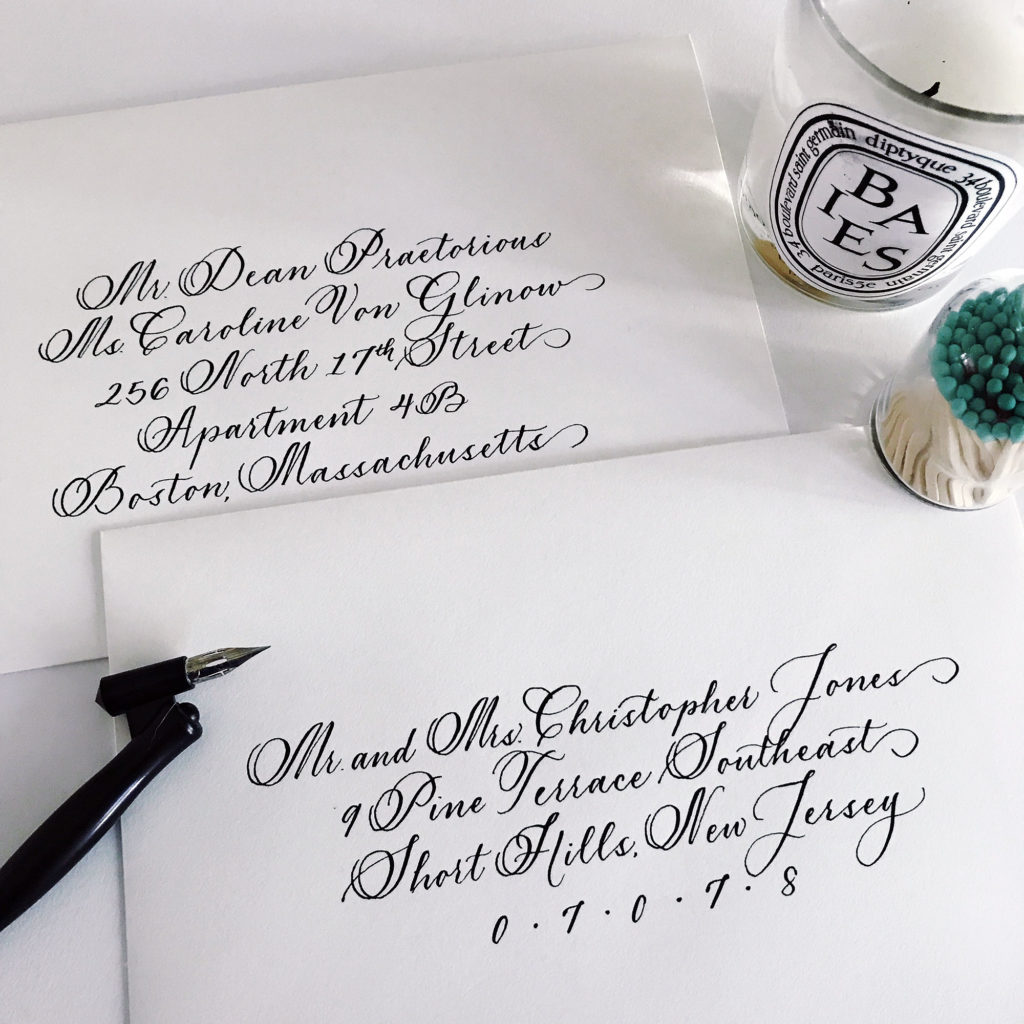 Mr. Dean Praetorious
Ms. Caroline Von Glinow
256 North 17th Street
Apartment 4B
Boston, Massachusetts
Mr. and Mrs. Christopher Jones
9 Pine Terrace Southeast
Short Hills, New Jersey
0 · 7 · 0 · 7 · 8
34 boulevard saint germain diptyque 34 boulevard saint germain paris5e
BA
IES